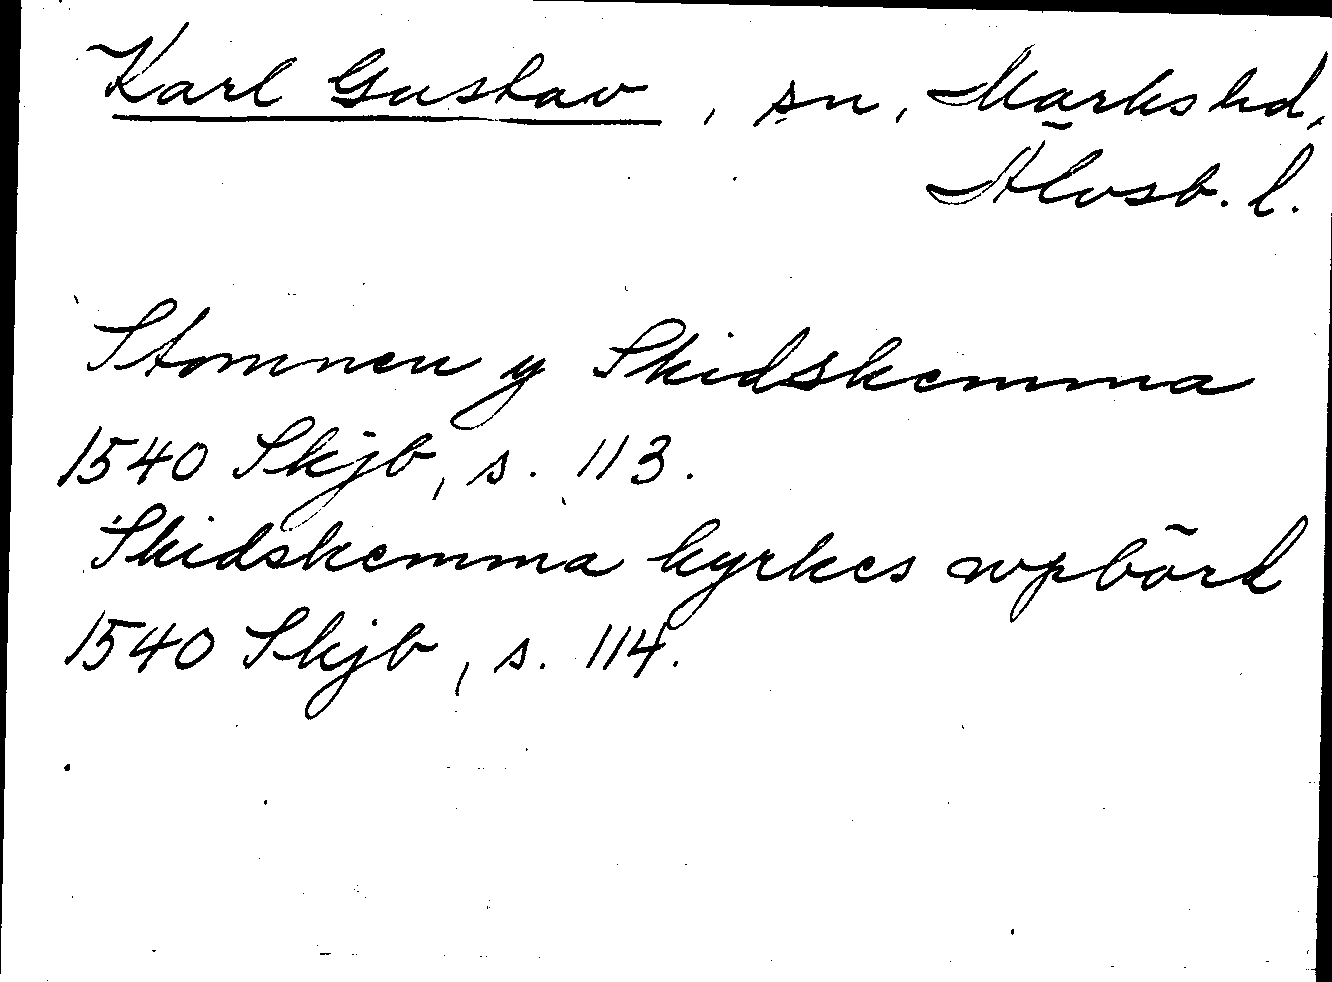 Karl Gustav, sn, Marks hd,
Älvsb. l.
Stomnen y Skidskemma
1540 Skjb, s. 113.
Skidskemma kyrkes wpbörd
1540 Skjb, s. 114.